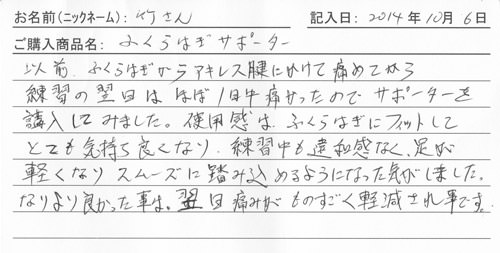 お名前(ニックネーム): 竹さん 記入日: 2014年10月6日
ご購入商品名: ふくらはぎサポーター
以前、ふくらはぎからアキレス腱にかけて痛めてから
練習の翌日はほぼ1日中痛かったのでサポーターを
購入してみました。使用感は、ふくらはぎにフィットして
とても気持ち良くなり、練習中も違和感なく、足が
軽くなりスムーズに踏み込めるようになった気がしました。
なりより良かった事は、翌日痛みがものすごく軽減され事です。